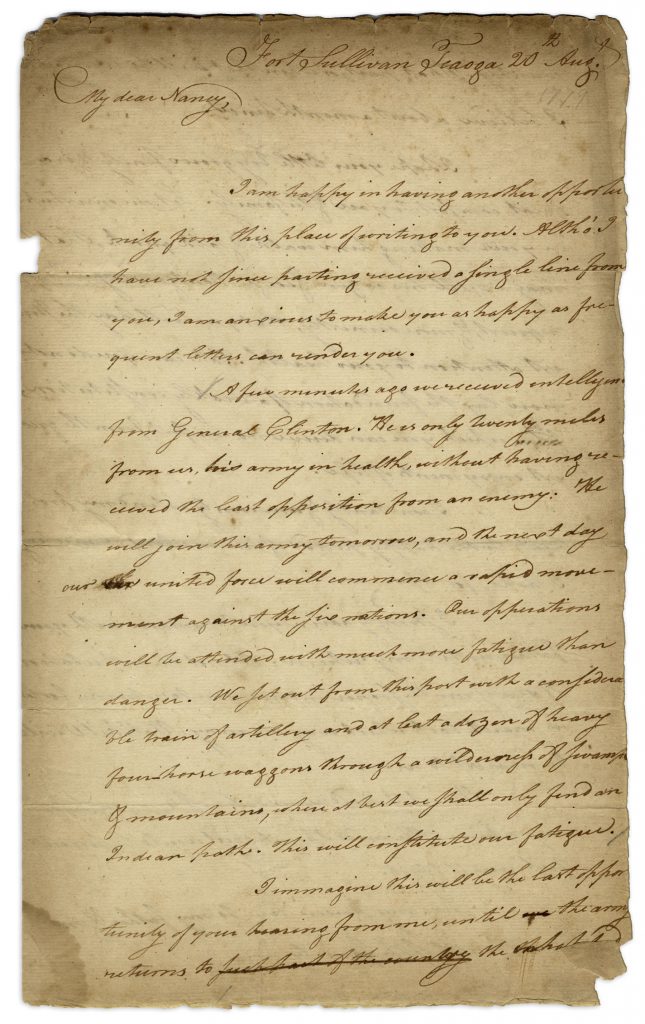 Fort Sullivan Teaoga 20th Augt
1779
My dear Nancy,
I am happy in having another opportu
nity from this place of writing to you. Altho' I
have not since parting received a single line from
you, I am anxious to make you as happy as fre-
quent letters can render you.
A few minutes ago we received intelligen
from General Clinton. He is only twenty miles
from us, his army in health, without having re-
ceived the least opposition from an enemy. He
will join this army tomorrow, and the next day
our united force will commence a rapid move-
ment against the six nations. Our opperations
will be attended with much more fatigue than
danger. We set out from this post with a considera
ble train of artillery and at leat a dozen of heavy
four-horse waggons through a wilderness of swamp
& mountains, where at best we shall only find an
Indean path. This will constitute our fatigue.
I immagine this will be the last oppor
tunity of your hearing from me, until the army
returns to such part of the country the